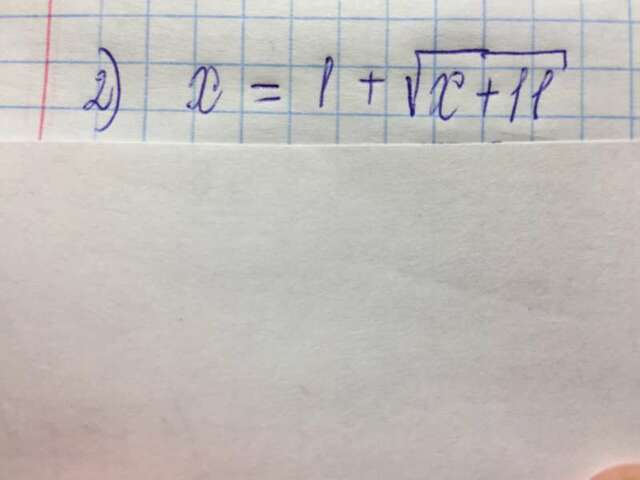 2) x = 1 + √(x+11)